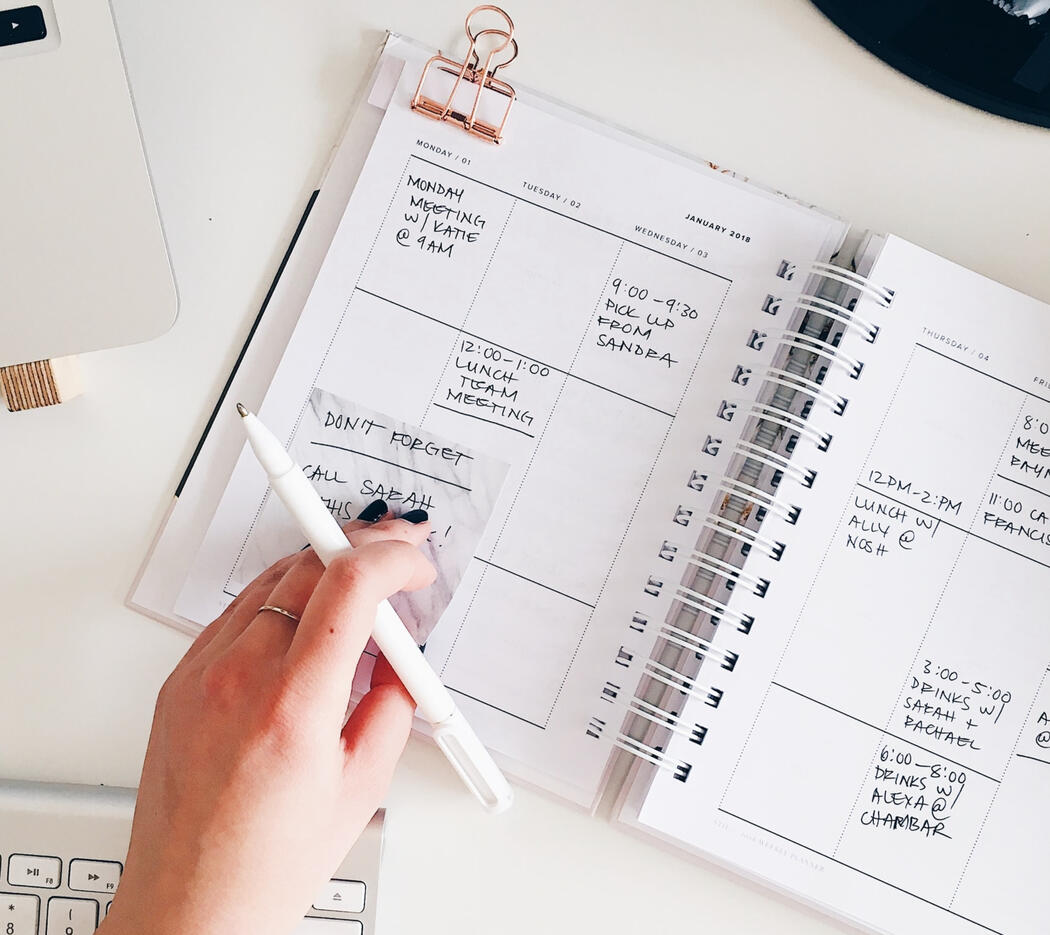 MONDAY / 01
MONDAY
MEETING
W/ KATIE
@ 9AM
TUESDAY / 02
12:00-1:00
LUNCH
TEAM
MEETING
JANUARY 2018
WEDNESDAY / 03
9:00-9:30
PICK UP
FROM
SANDRA
DON'T FORGET
CALL SARAH
THIS
!
THURSDAY / 04
12PM-2:PM
LUNCH W/
ALLY @
NOSH
FRI
8:0
MEE
11:00 CA
FRANCIS
3:00-5:00
DRINKS W/
SARAH +
RACHAEL
6:00-8:00
DRINKS W/
ALEXA @
CHAMBAR
A
@
WEEKLY PLANNER
F8
F9
*
8
(
9